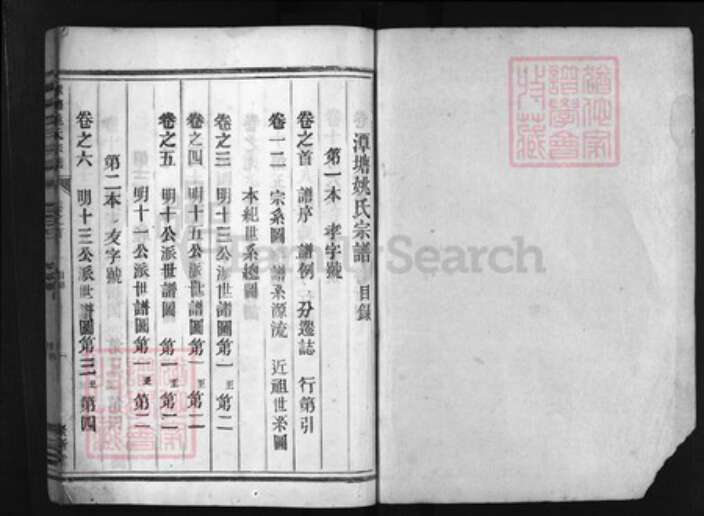 潭塘姚氏宗譜 目錄
第一本 孝字號
卷之首 譜序 譜例 分遷誌 行第引
卷一二 宗系圖 譜系源流 近祖世系圖
本紀世系總圖
卷之三 明十三公派世譜圖第一至第二
卷之四 明十五公派世譜圖第一至第二
卷之五 明十公派世譜圖 第一至第二
明十一公派世譜圖 第一至第二
第二本 友字號
卷之六 明十三公派世譜圖第三至第四
FamilySearch